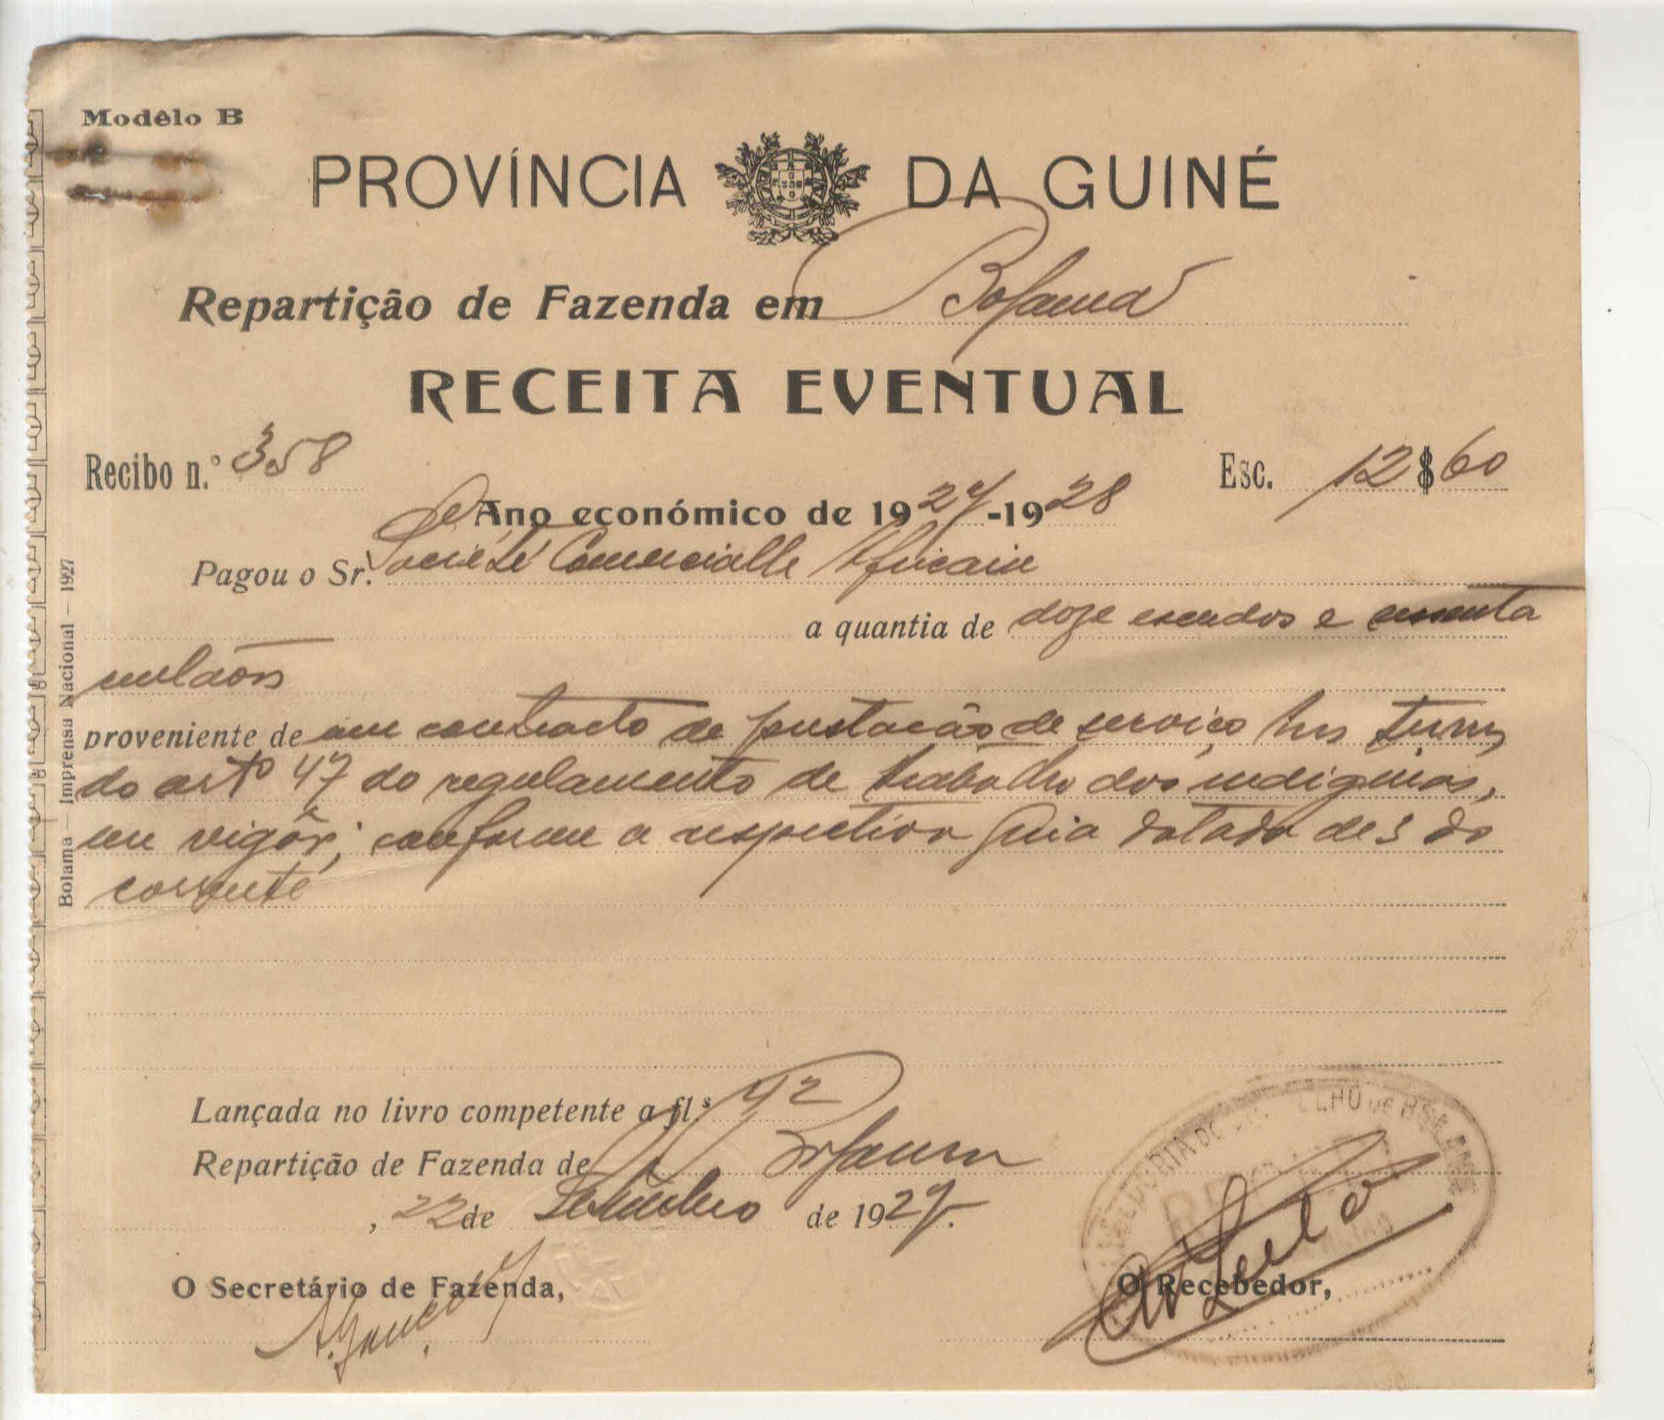 Modêlo B
PROVÍNCIA DA GUINÉ
Repartição de Fazenda em Bolama
RECEITA EVENTUAL
Recibo n.º 358
Esc. 12$60
Ano económico de 1927-1928
Pagou o Sr. Société Comercialle Africain
a quantia de doze escudos e sessenta
centavos
proveniente de um contracto de prestacão de serviço nos termos
do artº 47 do regulamento de trabalho dos indiginas,
em vigôr, conforme a respectiva guia datada de 3 do
corrente
Lançada no livro competente a fl.ˢ 42
Repartição de Fazenda de Bolama
, 22 de Setembro de 1927.
O Secretário de Fazenda,
O Recebedor,
Bolama — Imprensa Nacional — 1927